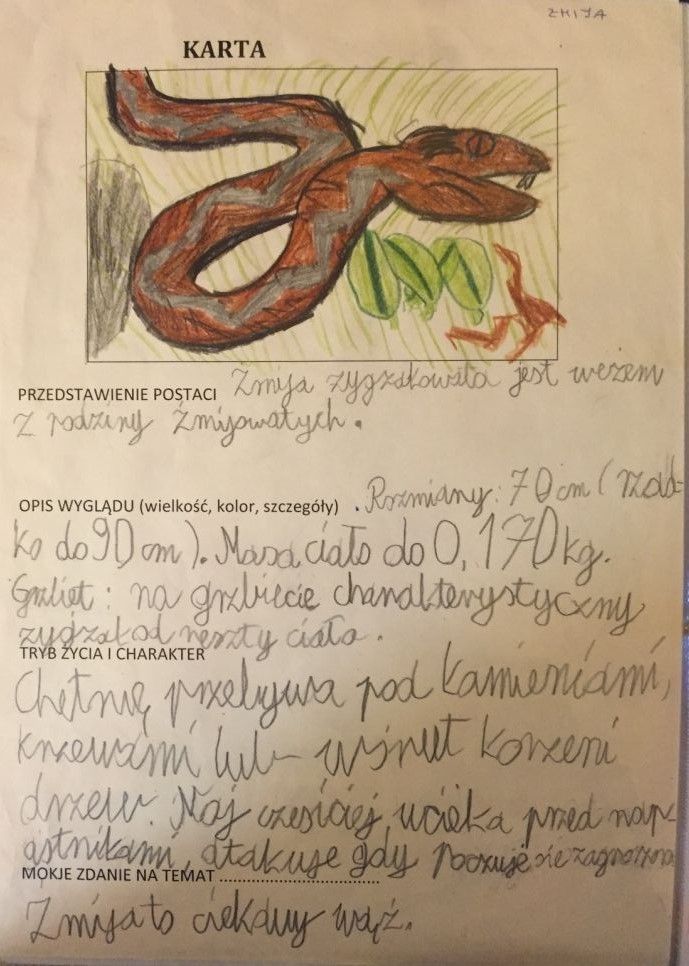 ŻMIJA
KARTA
PRZEDSTAWIENIE POSTACI Żmija zygzakowata jest wężem
z rodziny żmijowatych.
OPIS WYGLĄDU (wielkość, kolor, szczegóły) . Rozmiary: 70 cm (rzad=
ko do 90 cm). Masa ciało do 0,170 kg.
Grzbiet: na grzbiecie charakterystyczny
zygzak od reszty ciała.
TRYB ŻYCIA I CHARAKTER
Chętnię przebywa pod kamieniami,
krzewami lub wśrut korzeni
drzew. Naj częściej ucieka przed nap-
astnikami, atakuje gdy poczuje sie zagrożona
MOKJE ZDANIE NA TEMAT ................................
Żmija to ciekawy wąż.